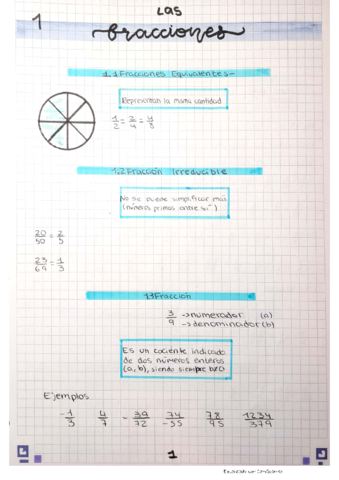 1
LAS
fracciones
1.1 Fracciones Equivalentes-
Representan la misma cantidad
1/2 = 2/4 = 4/8
1.2 Fracción Irreducible
No se puede simplificar más
(números primos entre sí)
20/50 = 2/5
23/69 = 1/3
1.3 Fracción
3/9 ->numerador (a)
->denominador (b)
Es un cociente indicado
de dos números enteros
(a, b), siendo siempre b≠0
Ejemplos
-1/3 4/7 -39/72 74/-55 78/95 1234/379
1